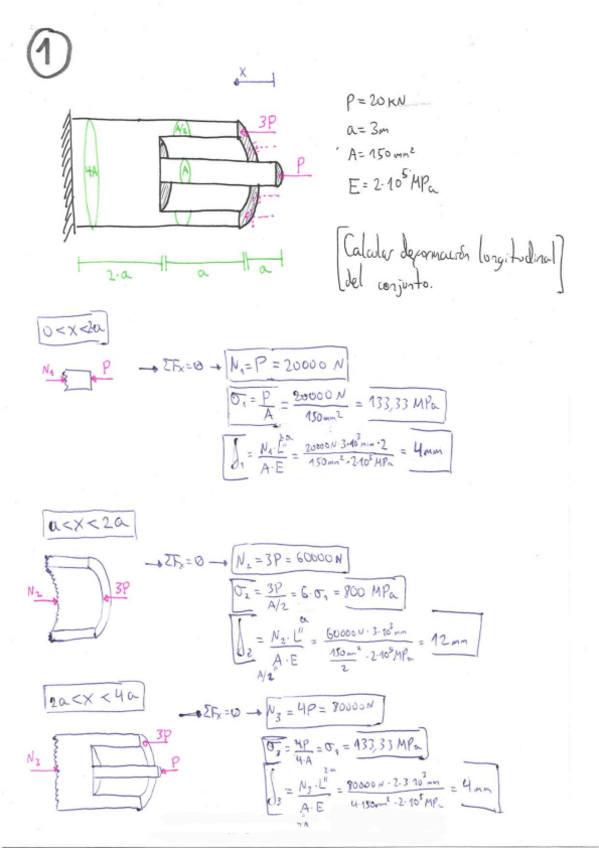 1
x
P = 20 KN
a = 3m
A = 150 mm²
E = 2·10⁵ MPa
3P
P
4A
A/2
A
2·a
a
a
[Calcular deformación longitudinal
del conjunto.]
0 < x < 2a
N₁
P
→ ΣFx = 0 → N₁ = P = 20000 N
σ₁ = P/A = 20000 N/150 mm² = 133,33 MPa
δ₁ = N₁·L/A·E = 20000N·3·10³mm·2/150mm²·2·10⁵MPa = 4mm
2a
a < x < 2a
N₂
3P
→ ΣFx = 0 → N₂ = 3P = 60000N
σ₂ = 3P/A/2 = 6·σ₁ = 800 MPa
δ₂ = N₂·L/A·E = 60000N·3·10³mm/150mm²/2·2·10⁵MPa = 12mm
a
A/2
2a < x < 4a
N₃
3P
P
→ ΣFx = 0 → N₃ = 4P = 80000N
σ₃ = 4P/4·A = σ₁ = 133,33 MPa
= 80000N·2·3·10³mm/4·150mm²·2·10⁵MPa = 4mm